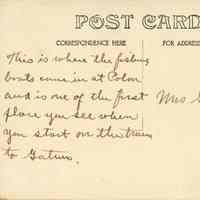 POST CARD
CORRESPONDENCE HERE
FOR ADDRESS
This is where the fishing
boats come in at Colon
and is one of the first
place you see when
you start on the train
to Gatun.
Mrs